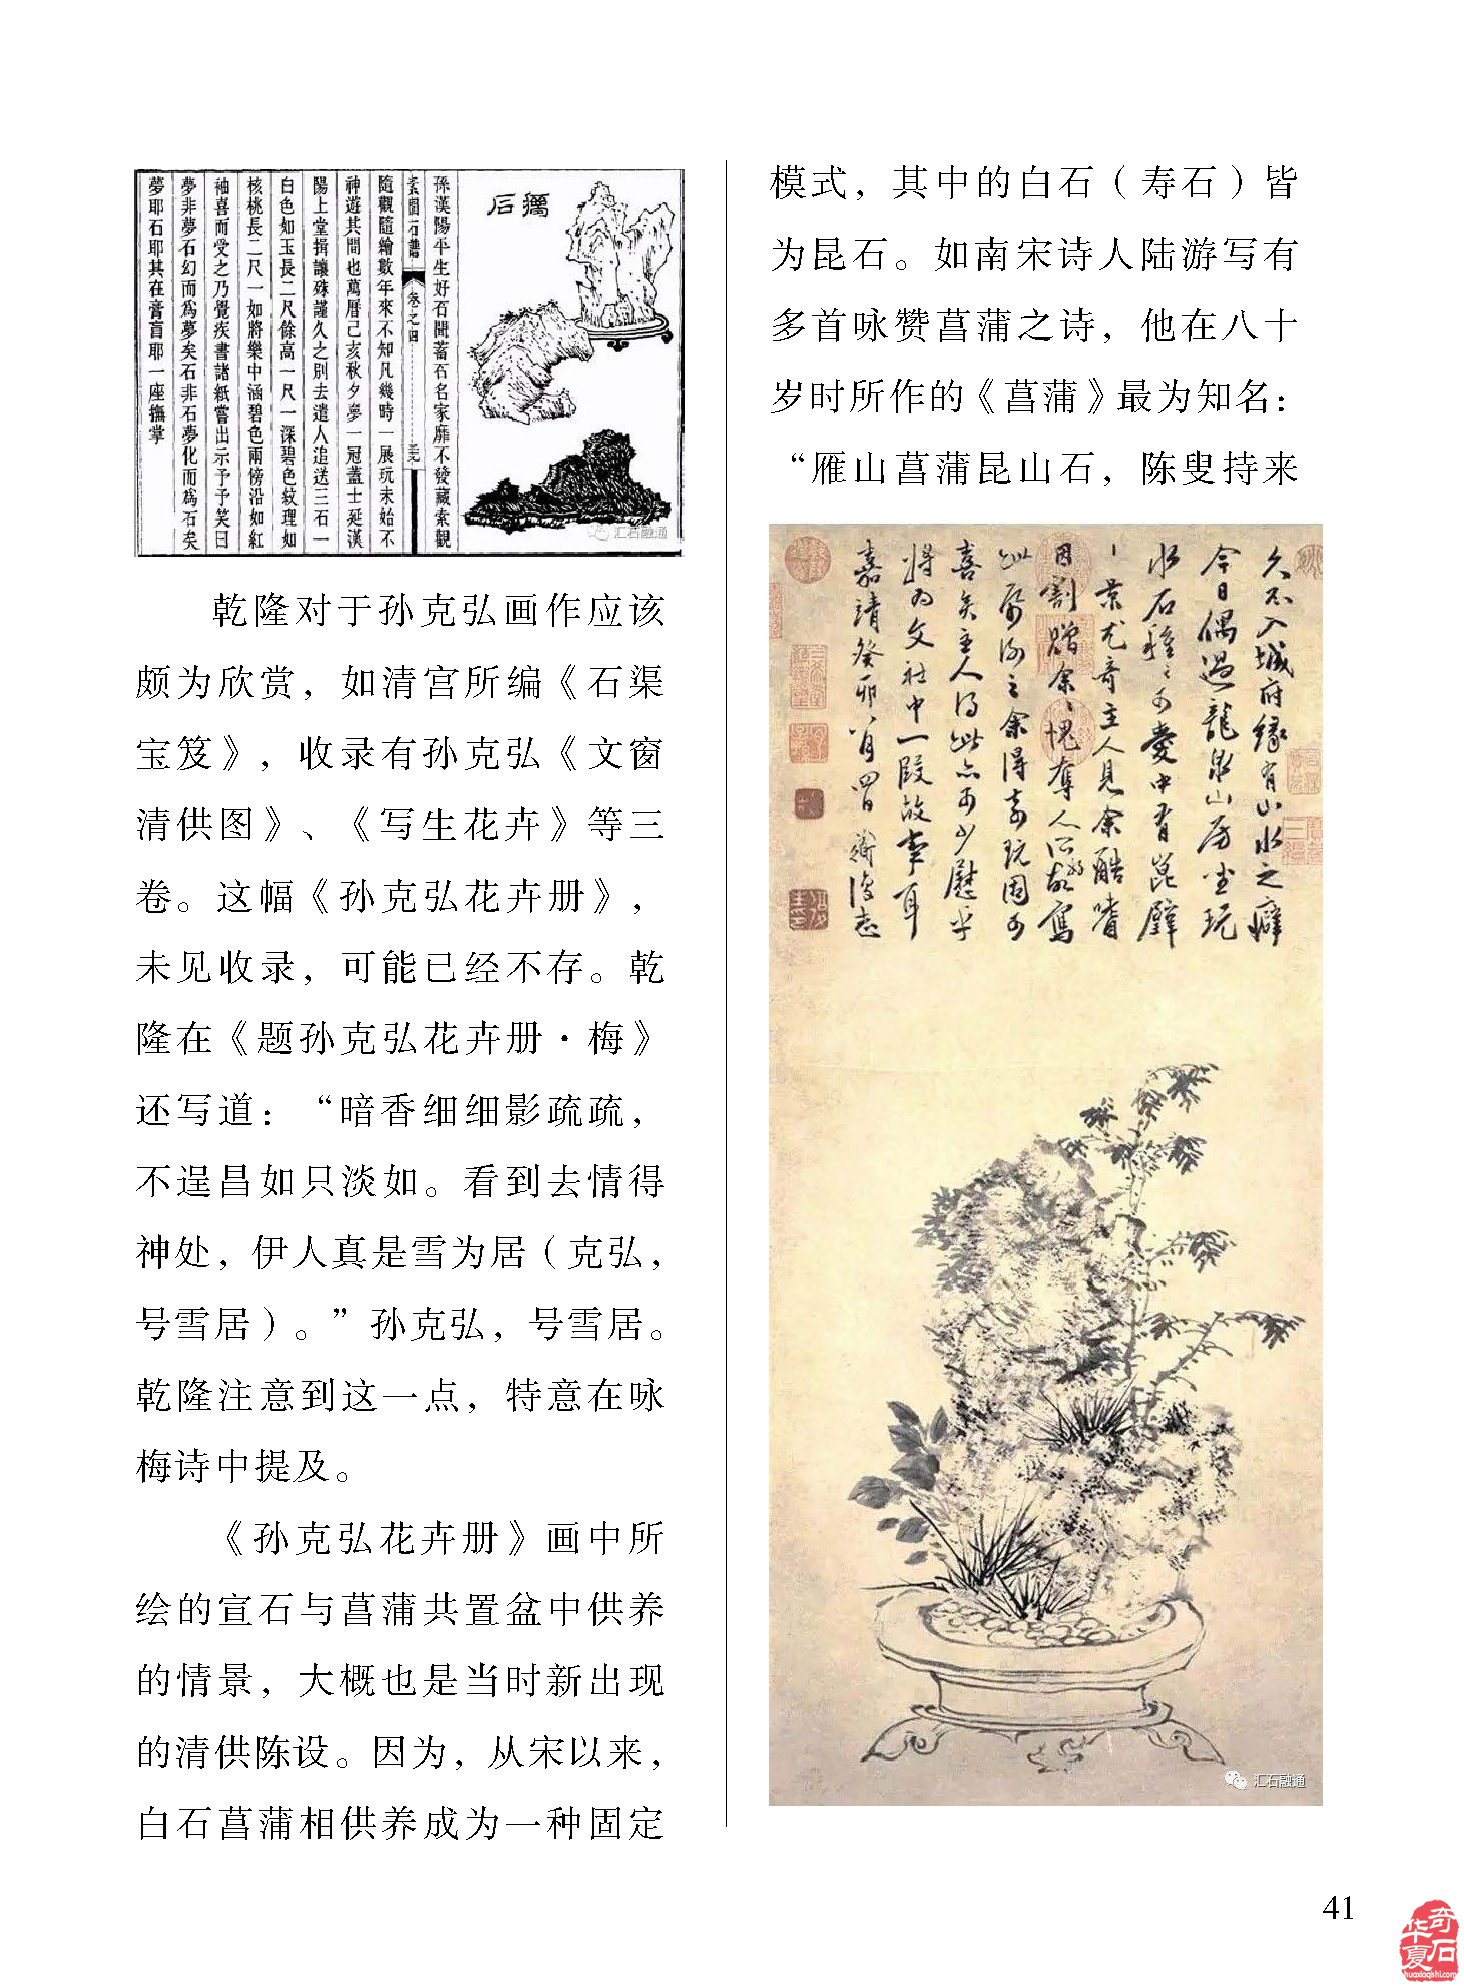 孫漢陽平生好石聞蓄石名家靡不發藏索觀
素園石譜 卷之四
隨觀隨繪數年來不知凡幾時一展玩未始不
神遊其間也萬曆己亥秋夕夢一冠蓋士延漢
陽上堂揖讓殊謹久之別去遣人追送三石一
白色如玉長二尺餘高一尺一深碧色紋理如
核桃長二尺一如將樂中涵碧色兩傍沿如紅
袖喜而受之乃覺疾書諸紙嘗出示予予笑曰
夢非夢石幻而爲夢矣石非石夢化而爲石矣
夢耶石耶其在膏肓耶一座撫掌
汇石融通
乾隆对于孙克弘画作应该
颇为欣赏，如清宫所编《石渠
宝笈》，收录有孙克弘《文窗
清供图》、《写生花卉》等三
卷。这幅《孙克弘花卉册》，
未见收录，可能已经不存。乾
隆在《题孙克弘花卉册·梅》
还写道：“暗香细细影疏疏，
不逞昌如只淡如。看到去情得
神处，伊人真是雪为居（克弘，
号雪居）。”孙克弘，号雪居。
乾隆注意到这一点，特意在咏
梅诗中提及。
《孙克弘花卉册》画中所
绘的宣石与菖蒲共置盆中供养
的情景，大概也是当时新出现
的清供陈设。因为，从宋以来，
白石菖蒲相供养成为一种固定
模式，其中的白石（寿石）皆
为昆石。如南宋诗人陆游写有
多首咏赞菖蒲之诗，他在八十
岁时所作的《菖蒲》最为知名：
“雁山菖蒲昆山石，陈叟持来
久不入城府緣有山水之癖
今日偶過龍泉山房坐玩
水石種種可愛中有崑璧
尤奇主人見余酷嗜
因割贈余余愧奪人所好故寫
此酬之余得奇玩固可
喜矣主人得此亦可少慰乎
將为文社中一段故事耳
嘉靖癸卯八月四日
汇石融通
41
华夏奇石
huaxiaqishi.com